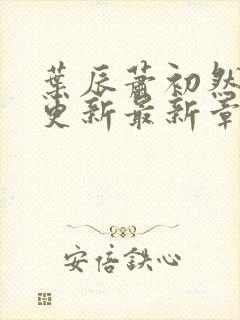 葉辰蕭初然
更新最新章
安倍鉄心